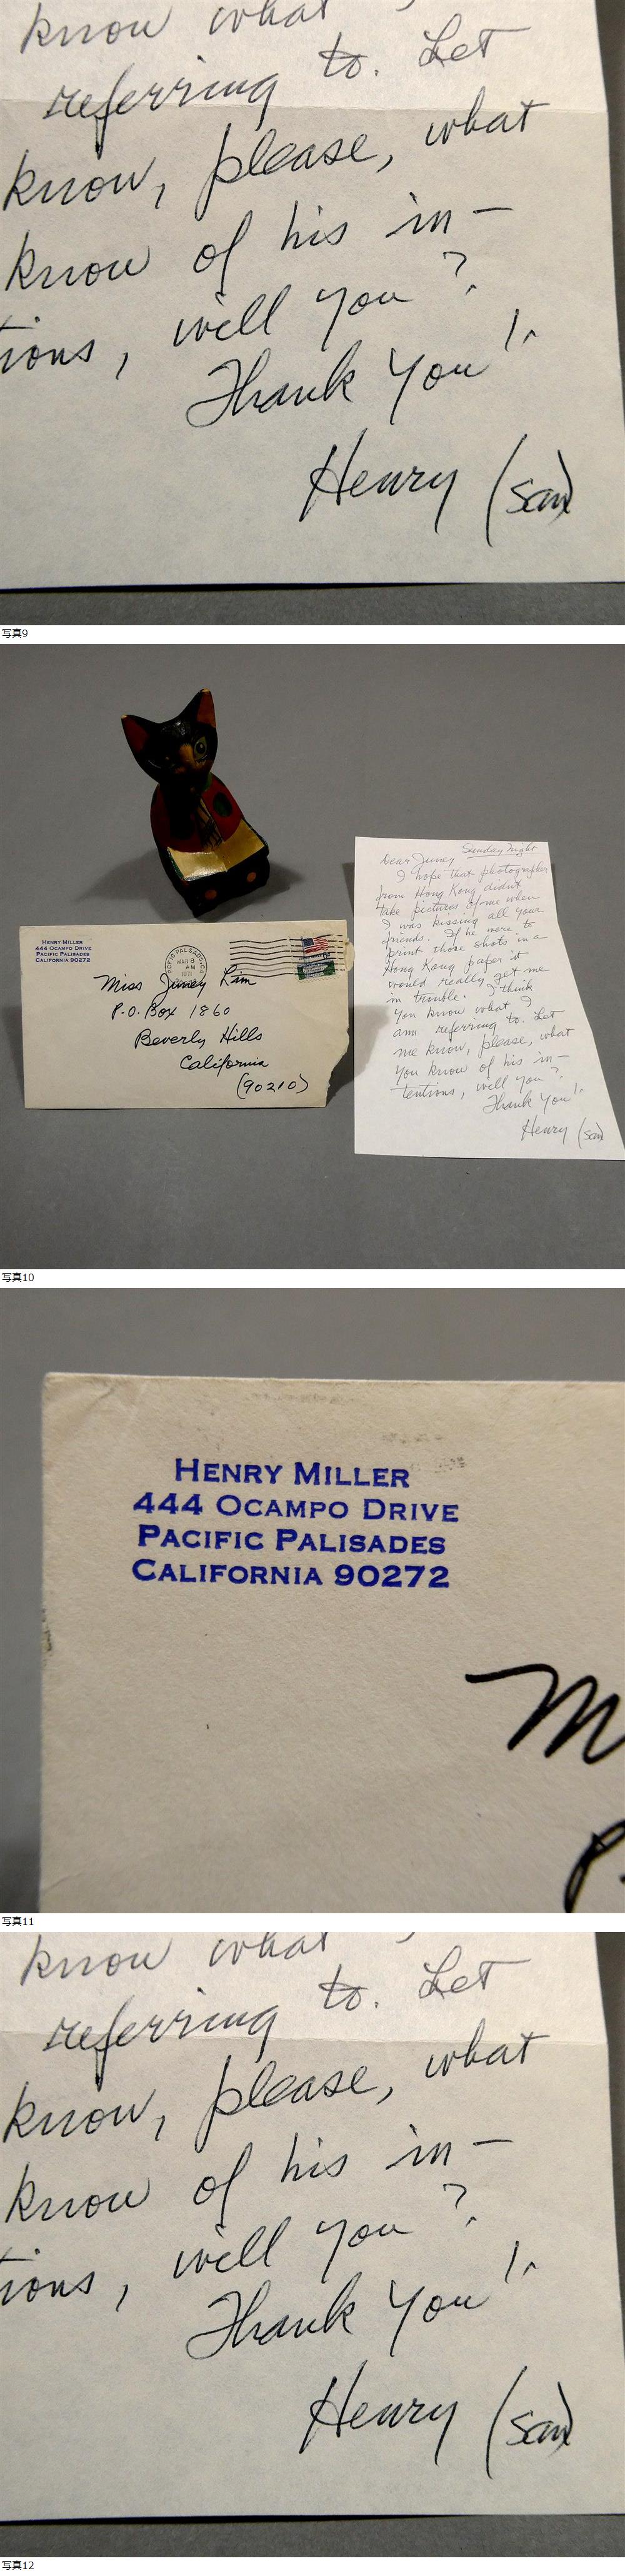 know what
referring to. Let
know, please, what
know of his in-
tions, will you?
Thank You!
Henry (san)
写真9
HENRY MILLER
444 OCAMPO DRIVE
PACIFIC PALISADES
CALIFORNIA 90272
MAR 8
AM
1971
Miss Juney Lim
P.O. Box 1860
Beverly Hills
California
(90210)
Sunday Night
Dear Juney
I hope that photographer
from Hong Kong didn't
take pictures of me when
I was kissing all your
friends. If he were to
print those shots in a
Hong Kong paper it
would really get me
in trouble. I think
you know what I
am referring to. Let
me know, please, what
you know of his in-
tentions, will you?
Thank You!
Henry (san)
写真10
HENRY MILLER
444 OCAMPO DRIVE
PACIFIC PALISADES
CALIFORNIA 90272
M
P.
写真11
know what
referring to. Let
know, please, what
know of his in-
tions, will you?
Thank You!
Henry (san)
写真12